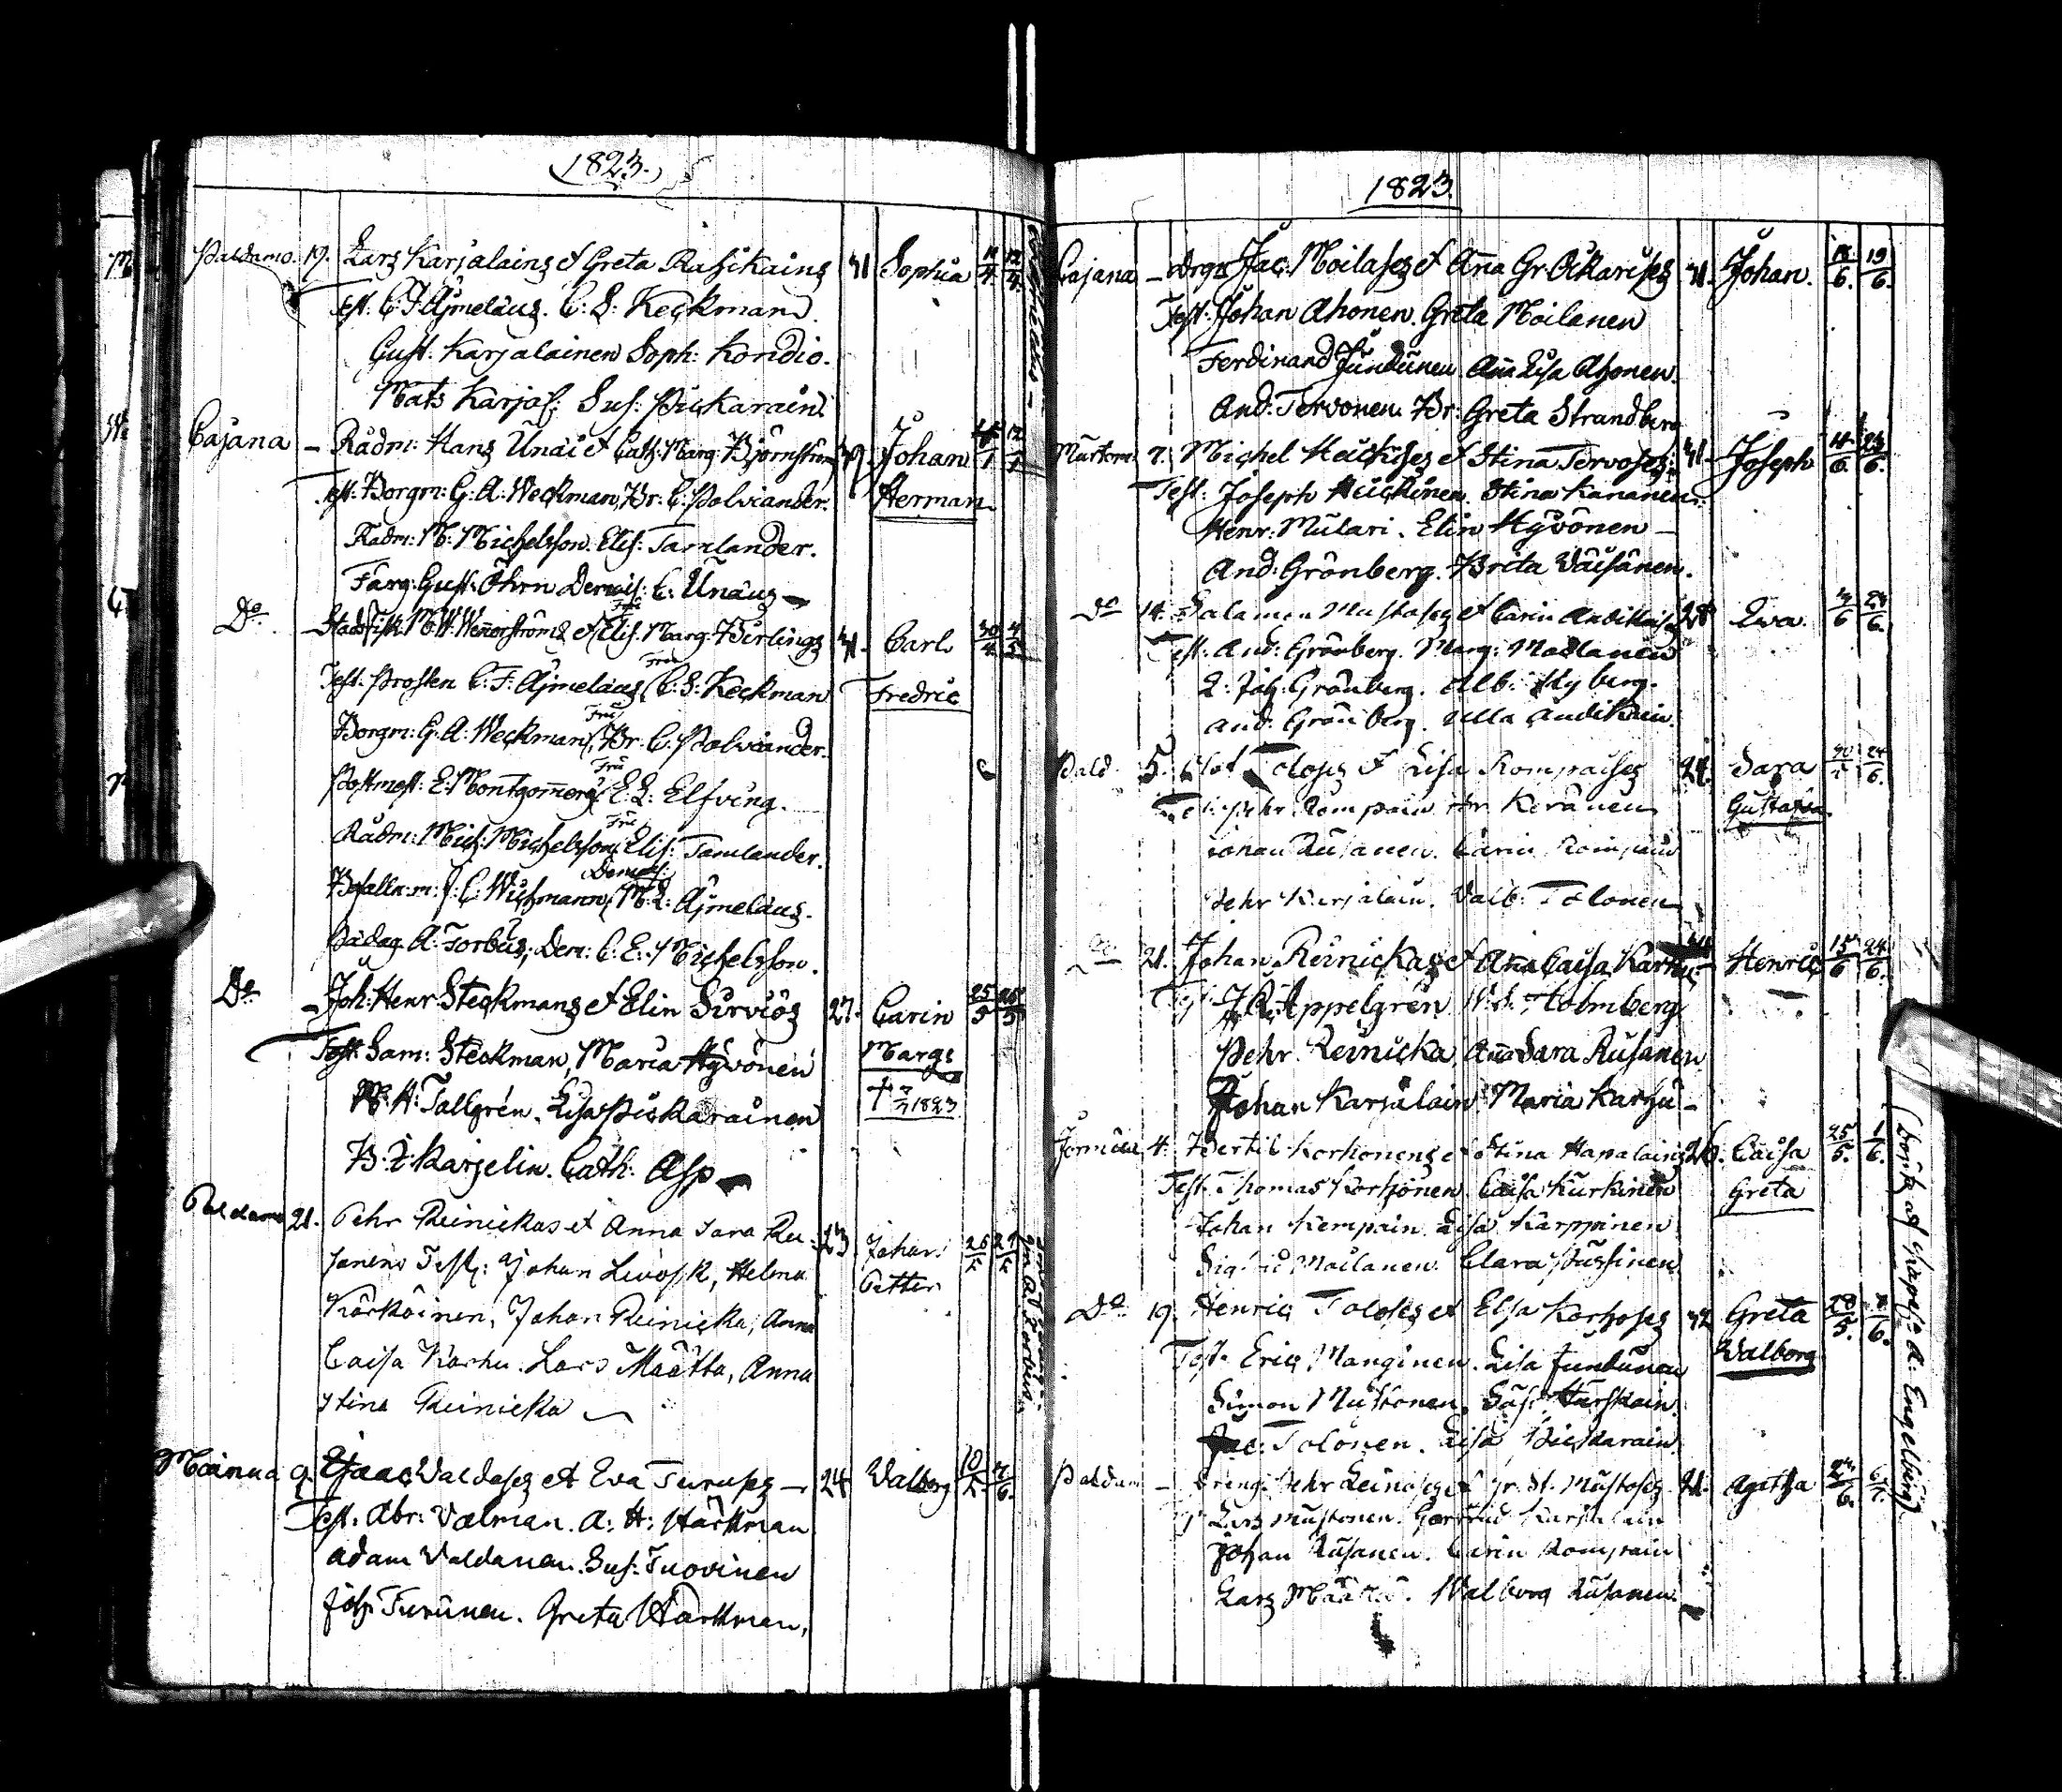 1823.
Paldamo. 19. Lars Karjalains et Greta Ratzikains 41 Sophia 11/4 12/4
Test. C. F. Ajmelæus. C: S: Keckman.
Gust: Karjalainen Soph: Kondio.
Mats Karjal: Sus: Pickarain:
Cajana – Rådm: Hans Unæi et Cath: Marg: Björnström 39 Johan
Test: Borgm: G: A: Weckman, Br: C: Polviander. Herman
Rådm: M: Michelsson. Elis: Tamlander.
Färg: Gust: Öhrn Demois: C: Unæus
Do – Stadsfisk: M. W. Wennerströms et Fru Elis: Marg: Birlings 41. Carl 30/4 4/5
Test. Prosten C: F: Ajmelæus, Fru C: S: Keckman Fredric
Borgm: G: A: Weckman, Fru Br: C: Polviander.
Postmest: E: Montgomery, Fru E: L: Elfving.
Rådm: Mich: Michelsson, Fru Elis: Tamlander.
Befalln:m: J: C: Wichmann, Demois: M: L: Ajmelæus.
Pædag. A: Forbus, Dem: C: E: Michelsson.
Do – Joh: Henr: Steckmans et Elin Sirviös 27. Carin 25/5
Test: Sam: Steckman, Maria Hyvönen Marg:
A: Tallgrén. Lisa Pickarainen † 7/7 1823
Karjelin. Cath: Asp
Paldamo 21. Pehr Reinickas et Anna Sara Ru- 23 Johan
sanens Test: Johan Livosk, Helena Petter
Kärköinen, Johan Reinicka, Anna
Caisa Karhu. Lars Määtta, Anna
Stina Reinicka
Mainua 9. Isaac Valdases et Eva Turuses – 24 Valborg
Test. Abr: Valman. A: H: Harkman
Adam Valdanen. Sus: Tuovinen
Joh: Turunen. Greta Harkman,
1823.
Cajana – Jac: Moilases et Anna Gr. Oikarises 41. Johan. 18/6. 19/6.
Test: Johan Ahonen. Greta Moilanen
Ferdinand Juntunen. Anna Lisa Ahonen.
And: Tervonen. Br: Greta Strandberg
7. Michel Heickises et Stina Tervoses: 41. Joseph
Test: Joseph Heickinen. Stina Kananen.
Henr: Mulari. Elin Hyvönen –
And: Grönberg. Brita Väisänen.
Do 14. Salamon Mustoses et Carin Andikais 28 Eva
Test: And: Grönberg. Marg: Moilanen
Joh: Grönberg. Alb: Nyberg.
And: Grönberg. Ulla Andikain.
Pald: 5. Olof Toloses et Lisa Rompaises 24. Sara
Test: Pehr Rompain Br. Keränen Gustava.
Johan Rusanen. Carin Rompain
Pehr Karjalain. Valb: Tolonen
Do 21. Johan Reinickas et Anna Caisa Karhu Henric 15/6 24/6.
Test. Appelgrén Holmberg
Pehr Reinicka, Anna Sara Rusanen
Johan Karjalain Maria Karhu –
4. Bertil Korhonens et Stina Hapalains 26. Caisa 25/5. 1/6.
Test. Thomas Korhonen. Caisa Kurkinen Greta
Johan Kempain. Lisa Karppinen
Moilanen. Clara
Do 19. Henric Toloses et Elsa Korhoses 42 Greta
Test. Eric Manginen. Lisa Juntunen Valborg
Simon Mustonen.
Jac: Tolonen. Lisa Pickarain
– Dreng: Pehr Leinoses et Gr. St. Mustoses Agatha
Lars Mustonen. Gertrud Karjalain
Johan Rusanen. Carin Rompain
Lars Määttä. Walborg Rusanen.
(Döpt af A: Engelberg)